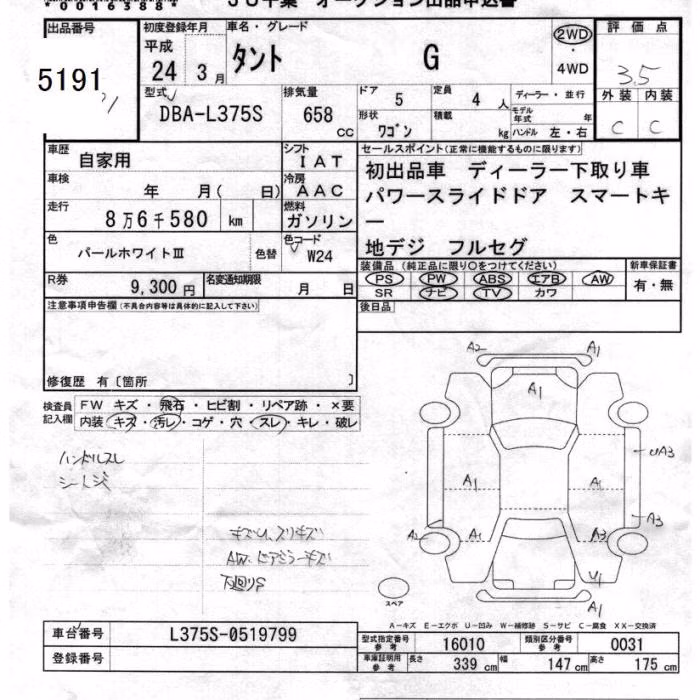 出品番号 初度登録年月 車名・グレード 2WD 評価点
5191 平成 24 3月 タント G ・ 3.5
4WD
型式 排気量 ドア 5 定員 4人 ディーラー・並行 外装 内装
DBA-L375S 658 cc 形状 ワゴン 積載 kg モデル年式 年 C C
ハンドル 左・右
車歴 自家用 シフト IAT セールスポイント(正常に機能するものに限ります)
車検 年 月( 日) 冷房 AAC 初出品車 ディーラー下取り車
走行 8万6千580 km 燃料 ガソリン パワースライドドア スマートキ
ー
色 パールホワイトⅢ 色替 色コード W24 地デジ フルセグ
R券 9,300円 名変通知期限 月 日 装備品(純正品に限り〇をつけてください) 新車保証書
PS PW ABS エアB AW 有・無
SR ナビ TV カワ
注意事項申告欄(不具合内容等は具体的に記入して下さい) 後日品
修復歴 有〔箇所 〕
検査員 FW キズ・飛石・ヒビ割・リペア跡・×要
記入欄 内装・キズ・汚レ・コゲ・穴・スレ・キレ・破レ
ハンドルスレ
シートシミ
A2 A1
A1
A1 A1 UA3
A3
A2 A1 A3
U1
A1
スペア
A－キズ E－エクボ U－凹み W－補修跡 S－サビ C－腐食 XX－交換済
車台番号 L375S-0519799 型式指定番号 参考 16010 類別区分番号 参考 0031
登録番号 車庫証明用 参考 長さ 339cm 幅 147cm 高さ 175cm